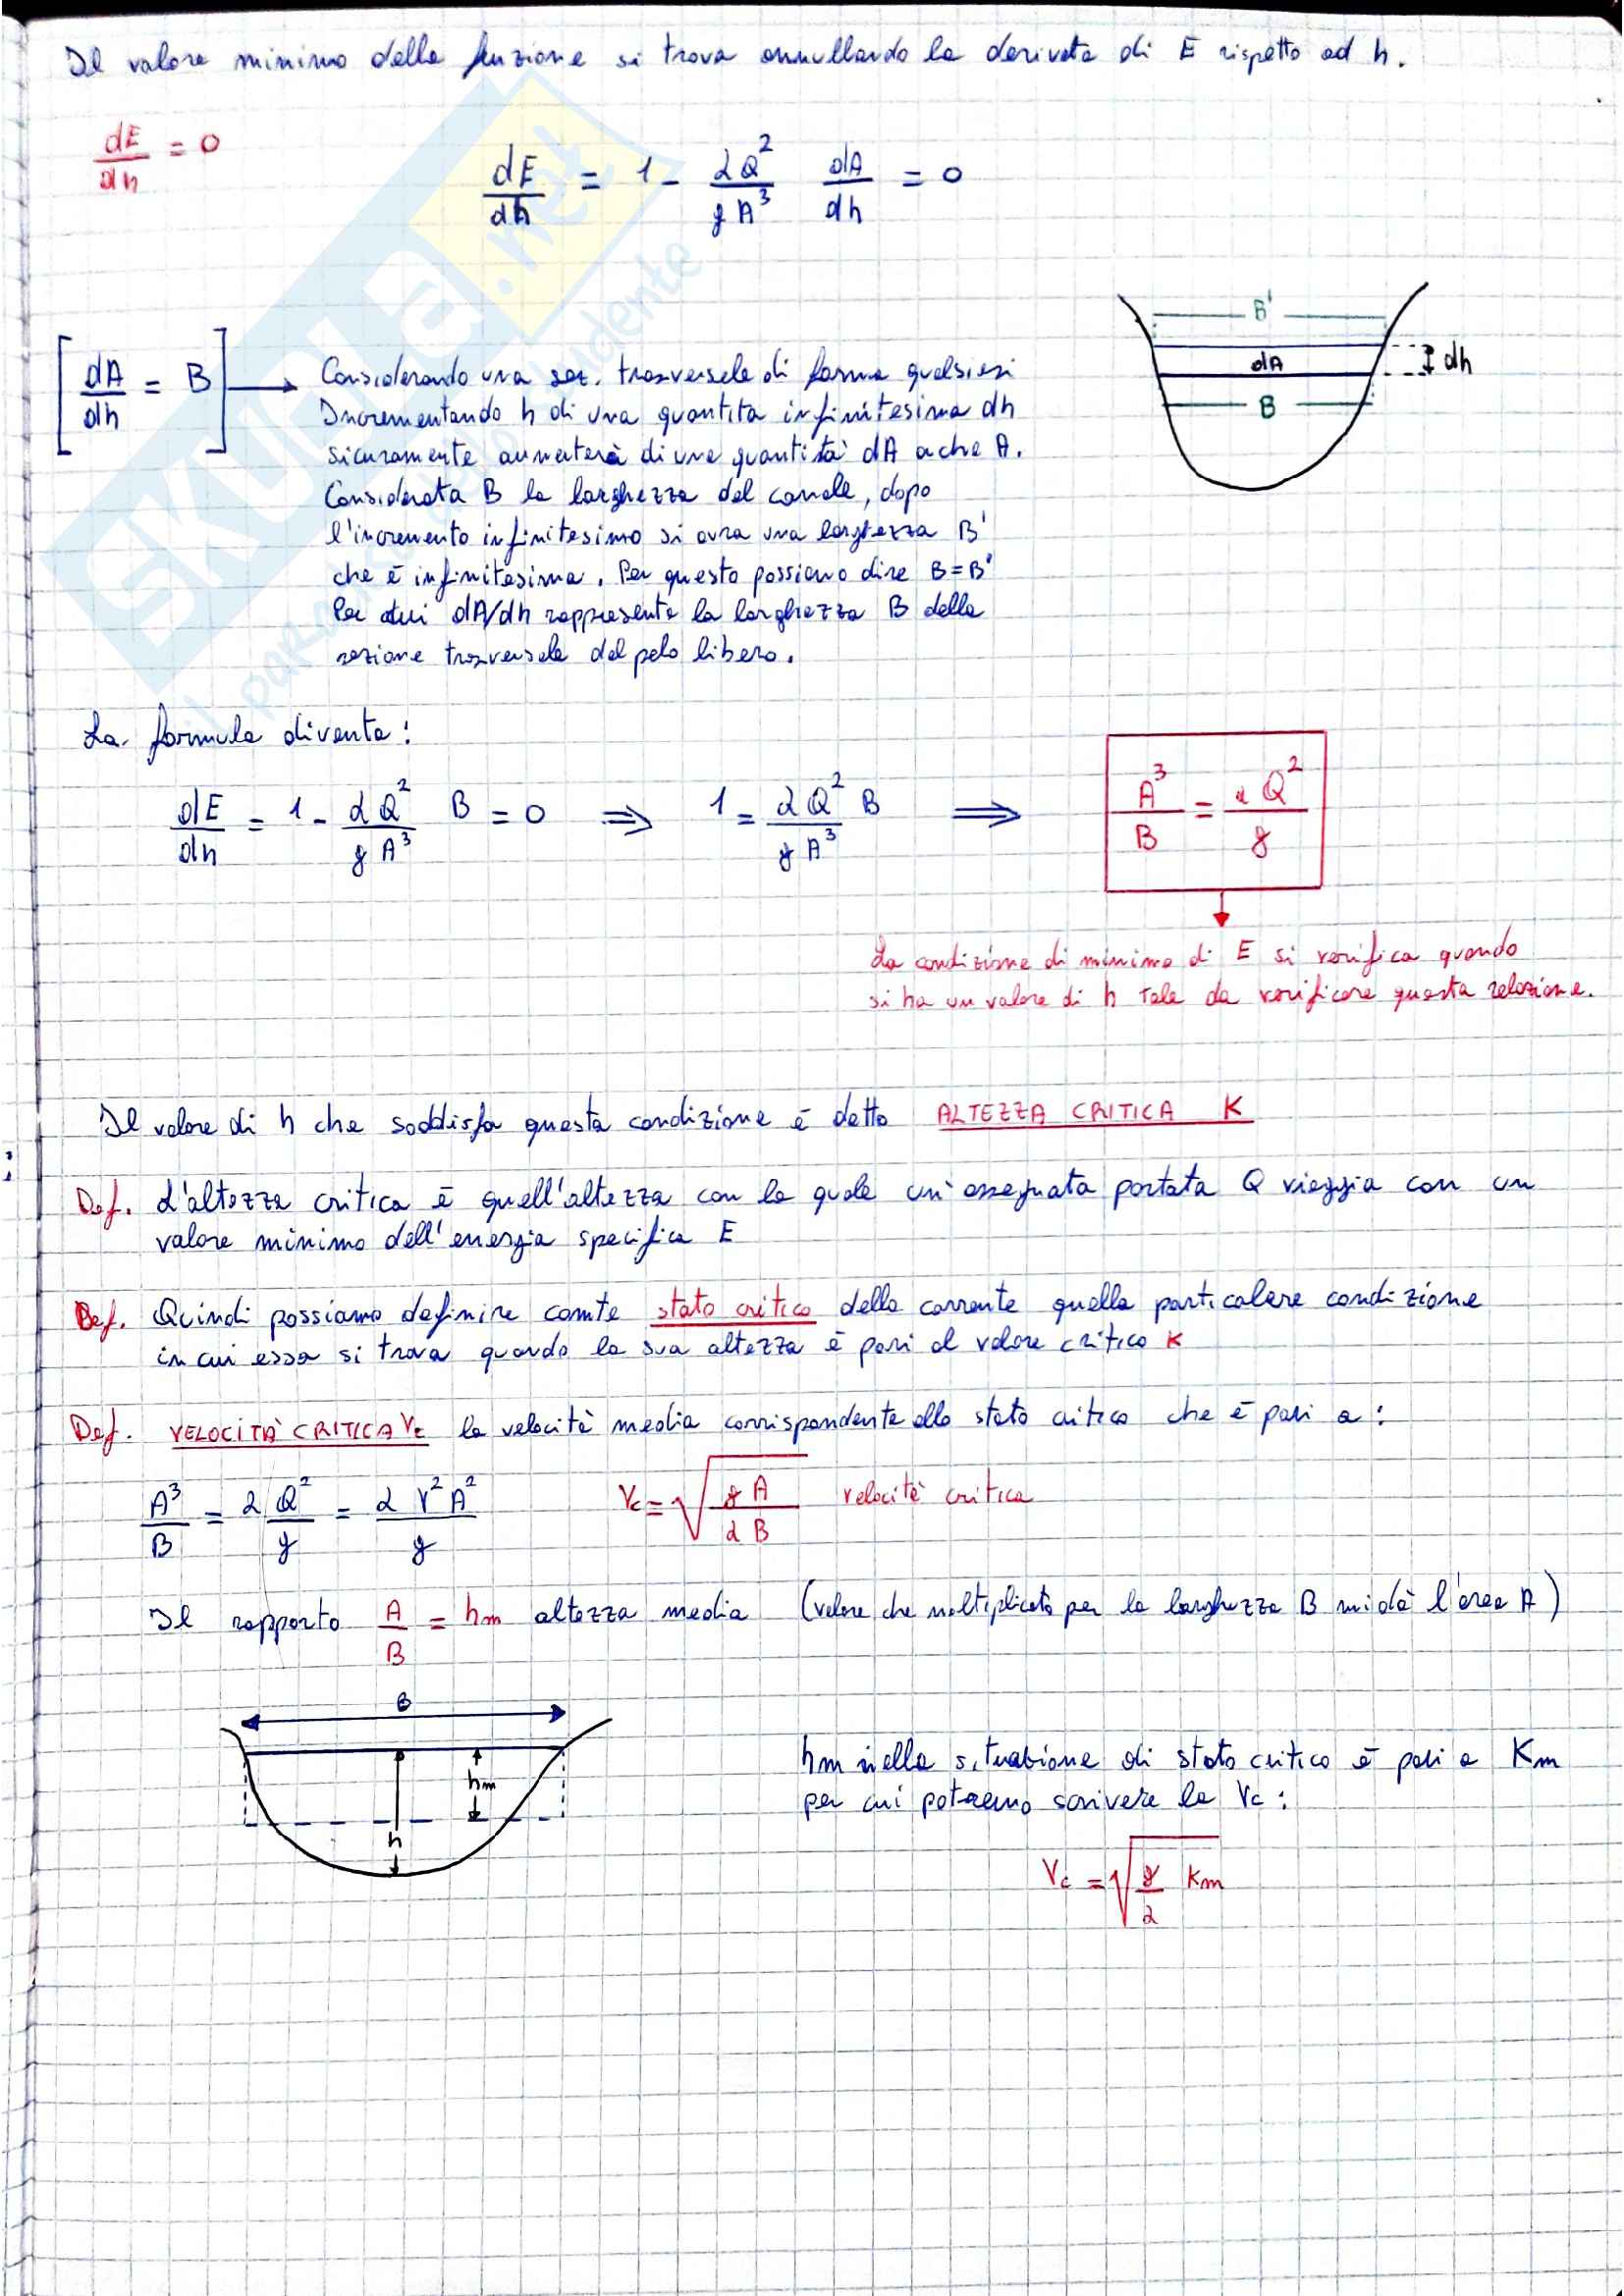 Il valore minimo della funzione si trova annullando la derivata di E rispetto ad h.
dE/dh = 0
dE/dh = 1 - αQ²/gA³ dA/dh = 0
[dA/dh = B] → Considerando una sez. trasversale di forma qualsiasi
Incrementando h di una quantita infinitesima dh
sicuramente aumenterà di una quantità dA anche A.
Considerata B la larghezza del canale, dopo
l'incremento infinitesimo si avra una larghezza B'
che è infinitesima. Per questo possiamo dire B=B'
Per cui dA/dh rappresenta la larghezza B della
sezione trasversale del pelo libero.
B'
dA
dh
B
La formula diventa:
dE/dh = 1 - αQ²/gA³ B = 0 ⇒ 1 = αQ²/gA³ B ⇒ A³/B = αQ²/g
La condizione di minimo di E si verifica quando
si ha un valore di h tale da verificare questa relazione.
Il valore di h che soddisfa questa condizione è detto ALTEZZA CRITICA K
Def. L'altezza critica è quell'altezza con la quale un'assegnata portata Q viaggia con un
valore minimo dell'energia specifica E
Def. Quindi possiamo definire come stato critico della corrente quella particolare condizione
in cui essa si trova quando la sua altezza è pari al valore critico K
Def. VELOCITÀ CRITICA Vc la velocità media corrispondente allo stato critico che è pari a:
A³/B = αQ²/g = αV²A²/g Vc = √(gA/αB) velocità critica
Il rapporto A/B = hm altezza media (valore che moltiplicato per la larghezza B mi dà l'area A)
B
hm
h
hm nella situazione di stato critico è pari a Km
per cui potremo scrivere la Vc:
Vc = √(g/α Km)
SKUOLA.net